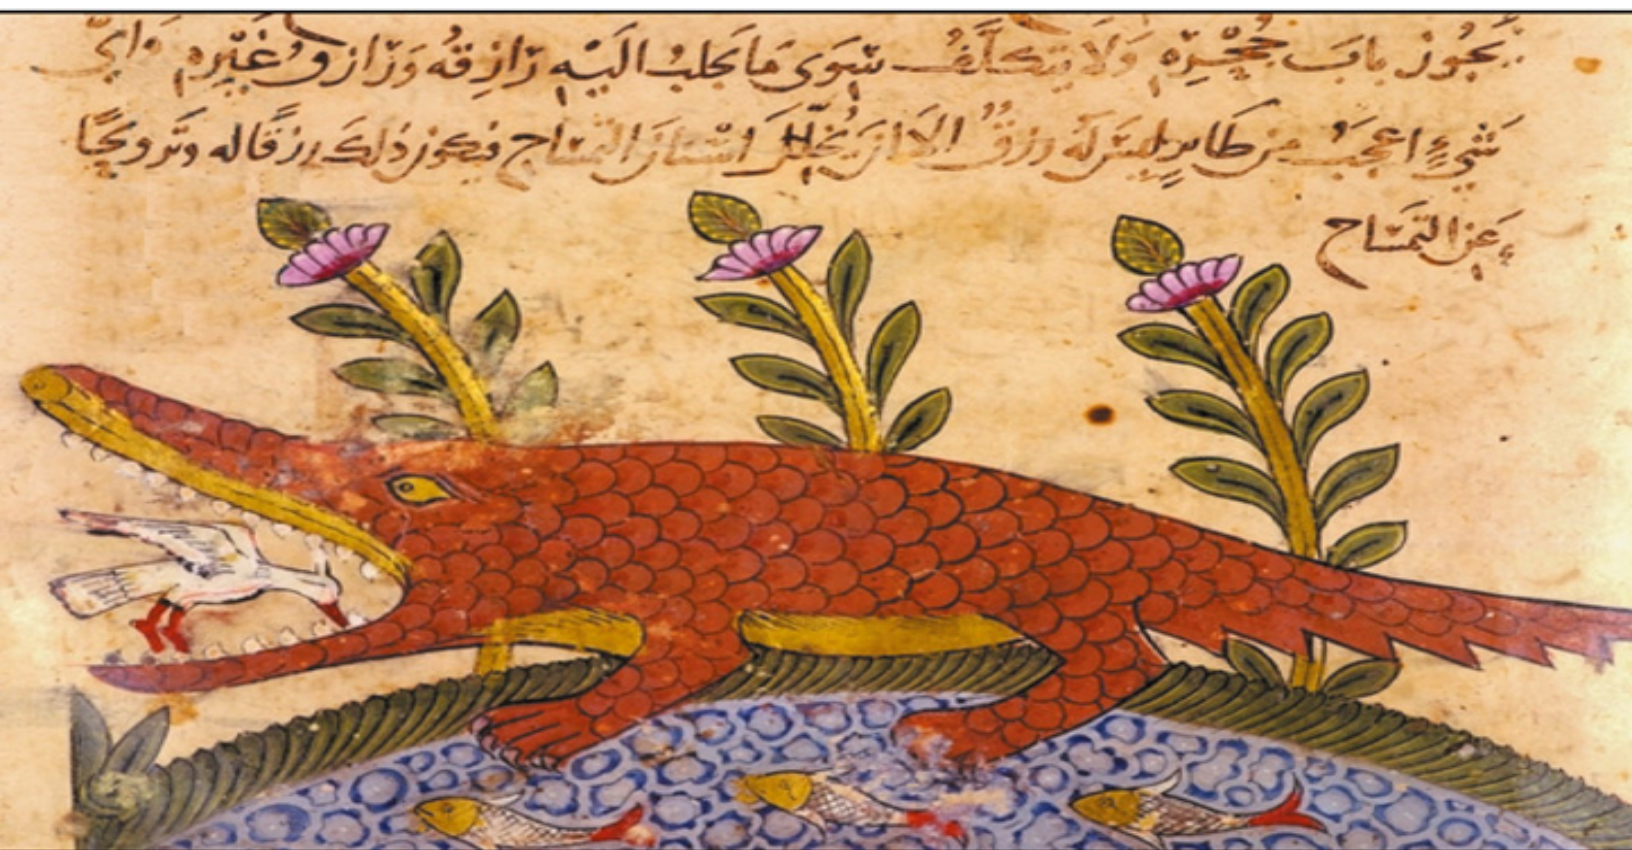 يجوز باب جحره ولا يتكلف سوى ما يجلب اليه رازقه ورازق غيره واي
شيء اعجب من طاير ليس له رزق الا ان يخلل اسنان التمساح فيكون ذلك رزقا له وترويحا
عن التمساح